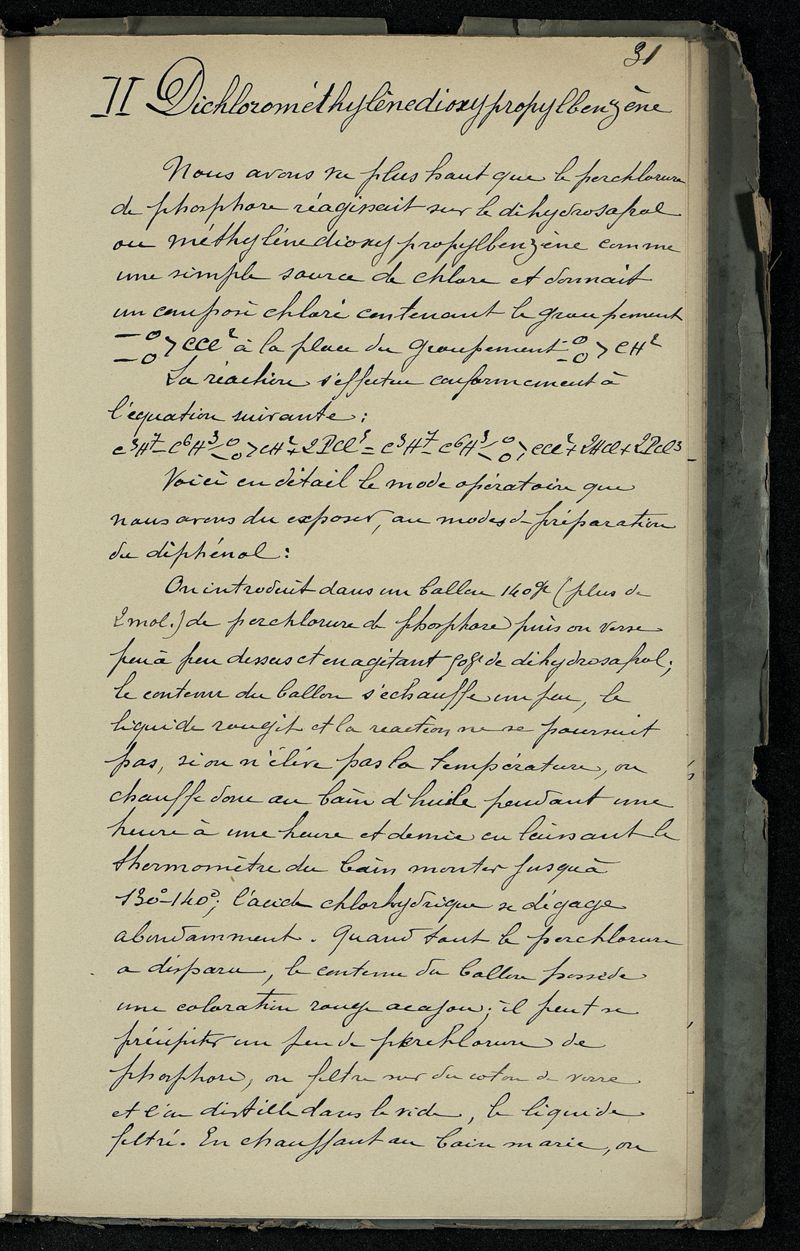 31
II Dichlorométhylènedioxypropylbenzène
Nous avons vu plus haut que le perchlorure
de phosphore réagissait sur le dihydrosafrol
ou méthylènedioxypropylbenzène comme
une simple source de chlore et donnait
un composé chloré contenant le groupement
–O–O>CCl² à la place du groupement –O–O>CH²
La réaction s'effectue conformement à
l'équation suivante :
C³H⁷–C⁶H³–O–O>CH²+2PCl⁵=C³H⁷–C⁶H³–O–O>CCl²+2HCl+2PCl³
Voici en détail le mode opératoire que
nous avons du exposer, au modes de préparation
du diphénol :
On introduit dans un ballon 140gr (plus de
2 mol.) de perchlorure de phosphore puis on verse
peu à peu dessus et en agitant 50gr de dihydrosafrol;
le contenu du ballon s'échauffe un peu, le
liquide rougit et la reaction ne se poursuit
pas, si on n'élève pas la température, on
chauffe donc au bain d'huile pendant une
heure à une heure et demie en laissant le
thermomètre du bain monter jusqu'à
130°-140°; l'acide chlorhydrique se dégage
abondamment. Quand tout le perchlorure
a disparu, le contenu du ballon possède
une coloration rouge acajou; il peut se
précipiter un peu de perchlorure de
phosphore, on filtre sur du coton de verre
et l'on distille dans le vide, le liquide
filtré. En chauffant au bain marie, on